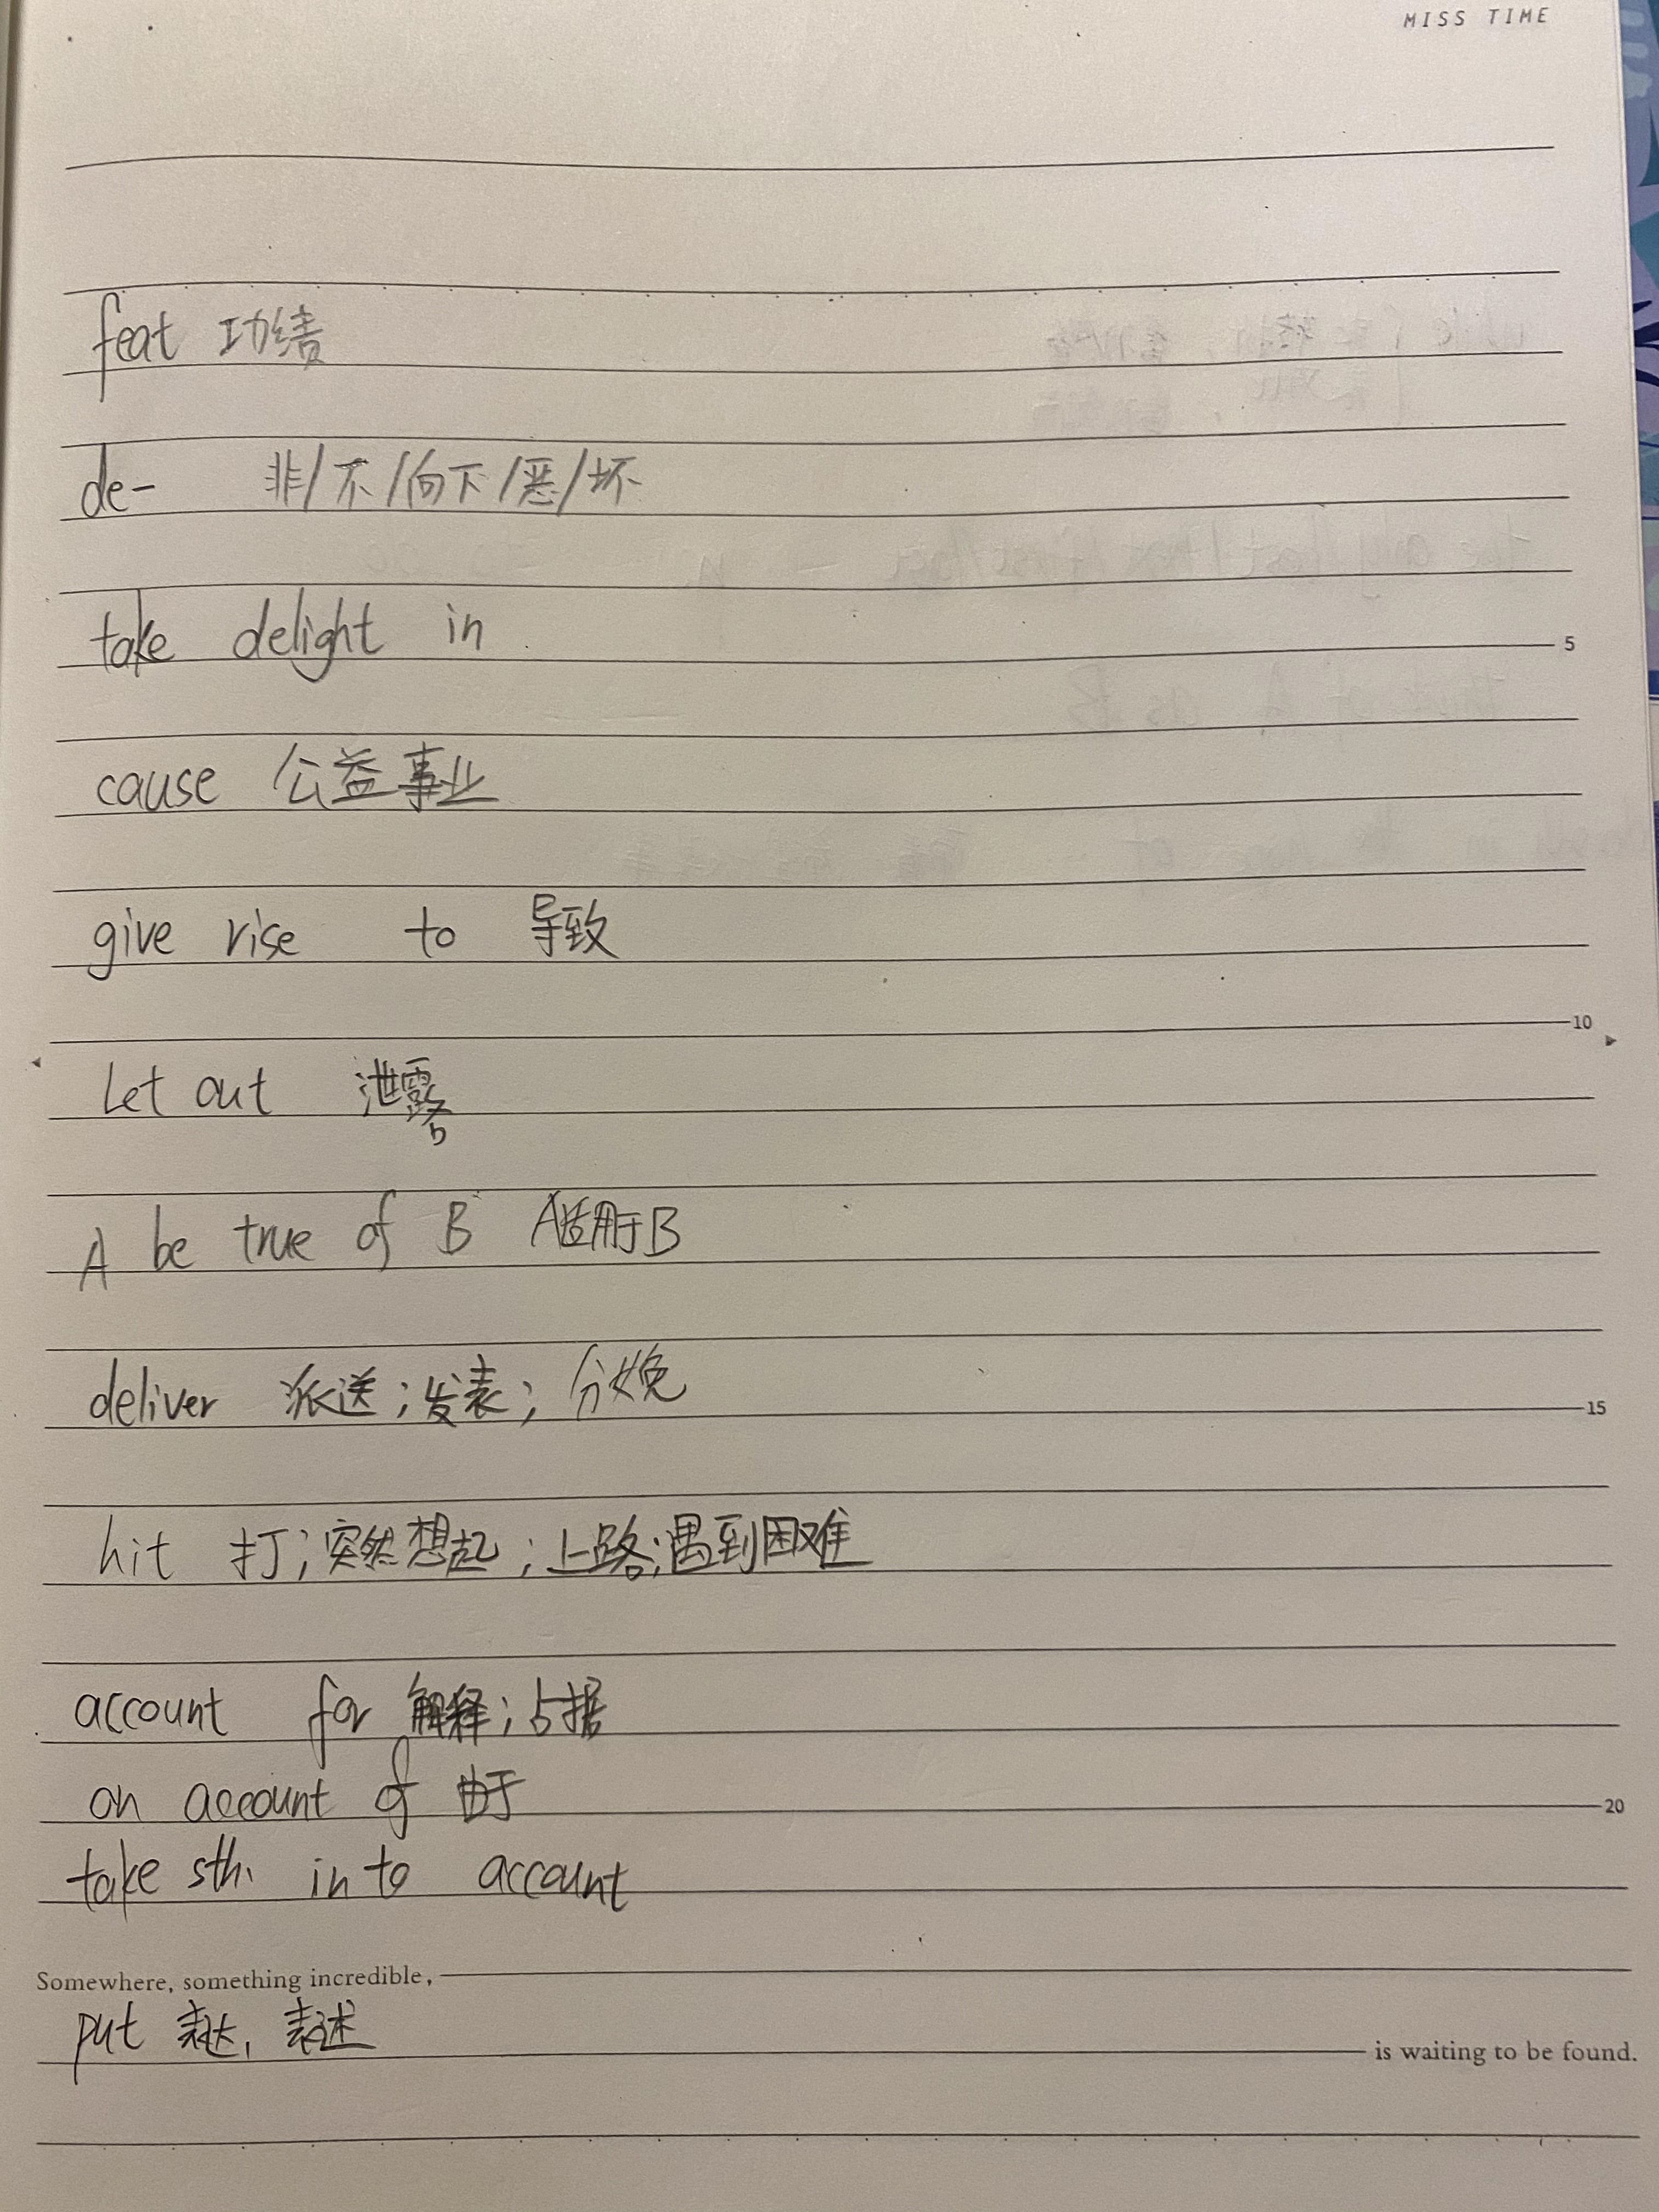 MISS TIME
feat 功绩
de- 非/不/向下/恶/坏
take delight in
5
cause 公益事业
give rise to 导致
10
Let out 泄露
A be true of B A适用于B
deliver 派送；发表；分娩
15
hit 打；突然想起；上路；遇到困难
account for 解释；占据
on account of 由于
20
take sth into account
Somewhere, something incredible,
put 表达，表述
is waiting to be found.